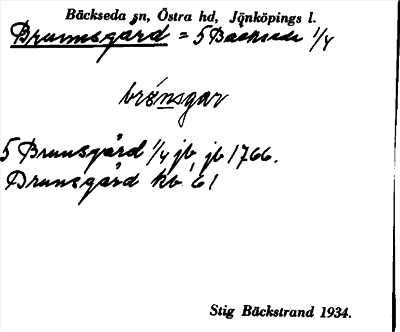 Bäckseda sn, Östra hd, Jönköpings l.
Brunnsgård = 5 Bäckseda 1/4
brénsgar
5 Brunsgård 1/4 jb, jb 1766.
Brunsgård kb 61
Stig Bäckstrand 1934.